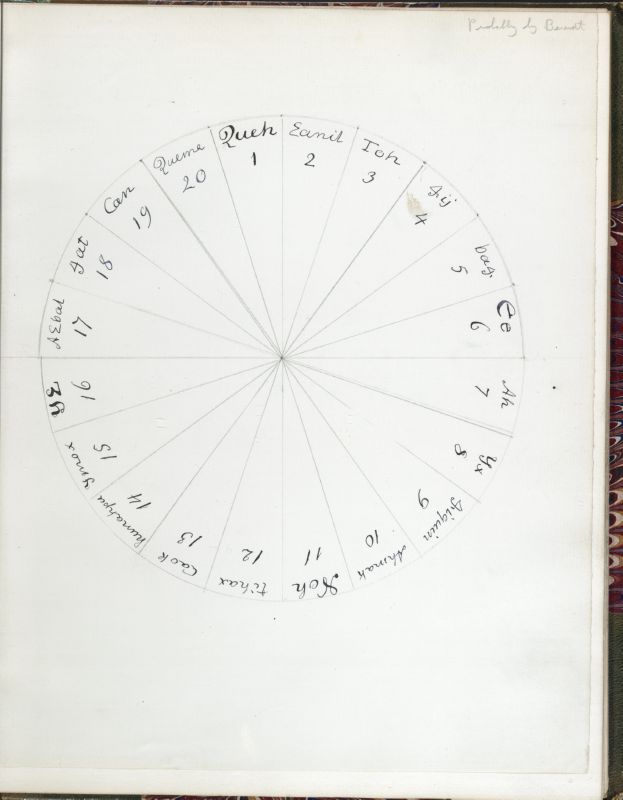 Probably by Berendt
Queh
1
Eanil
2
Toh
3
tzij
4
batz
5
Ee
6
Ah
7
Yx
8
tziquin
9
Ahmak
10
Noh
11
tihax
12
Caok
13
hunahpu
14
Ymox
15
Ih
16
AEbal
17
tzat
18
Can
19
Queme
20